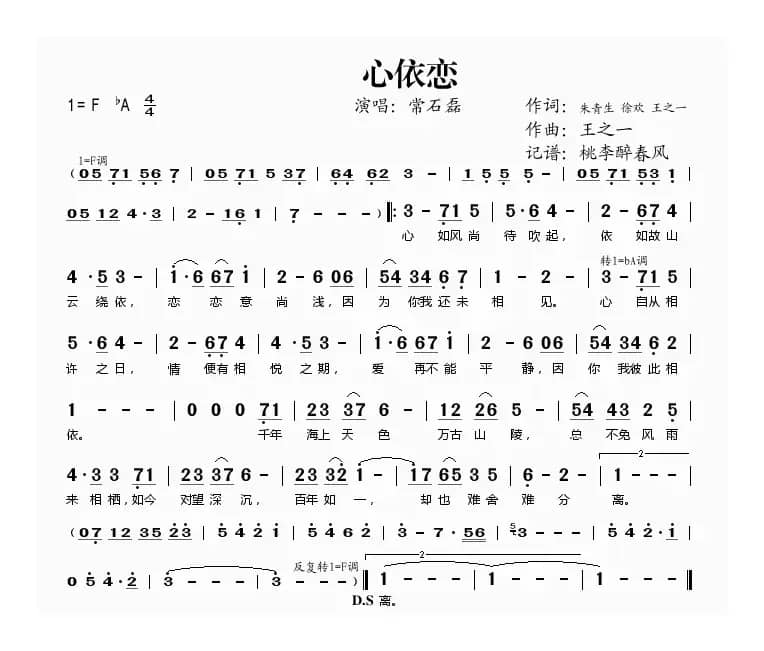 心依恋
1= F ♭A 4/4 演唱：常石磊 作词：朱青生 徐欢 王之一
作曲：王之一
记谱：桃李醉春风
1=F调
( 05 71 56 7 | 05 71 5 37 | 64 62 3 - | 1 55 5 - | 05 71 53 1 |
05 12 4·3 | 2 - 16 1 | 7 - - ) ‖: 3 - 71 5 | 5·6 4 - | 2 - 67 4 |
心 如风尚 待 吹起， 依 如故山
转1=bA调
4 ·5 3 - | 1·6 67 1 | 2 - 6 06 | 54 34 6 7 | 1 - - - | 3 - 71 5 |
云 绕依， 恋 恋意 尚 浅，因 为 你我还未 相 见。 心 自从相
5 ·6 4 - | 2 - 67 4 | 4 ·5 3 - | 1·6 67 1 | 2 - 6 06 | 54 34 6 2 |
许 之日， 情 便有相 悦 之期， 爱 再不能 平 静，因 你 我彼此相
1 - - - | 0 0 0 71 | 23 37 6 - | 12 26 5 - | 54 43 2 5 |
依。 千年 海上天 色 万古山 陵， 总 不免 风 雨
2
4·3 3 71 | 23 37 6 - | 23 32 1 - | 17 65 3 5 | 6 - 2 - | 1 - - - |
来 相 栖，如今 对望深 沉， 百年如 一， 却也 难 舍 难 分 离。
( 07 12 35 23 | 5 4 2 1 | 5 4 6 2 | 3 - 7 · 56 | 5 3 - - - | 5 4 2 · 1 |
反复转1=F调
2
0 5 4 · 2 | 3 - - - | 3 - - - ) ‖ 1 - - - | 1 - - - | 1 - - - ‖
D.S 离。